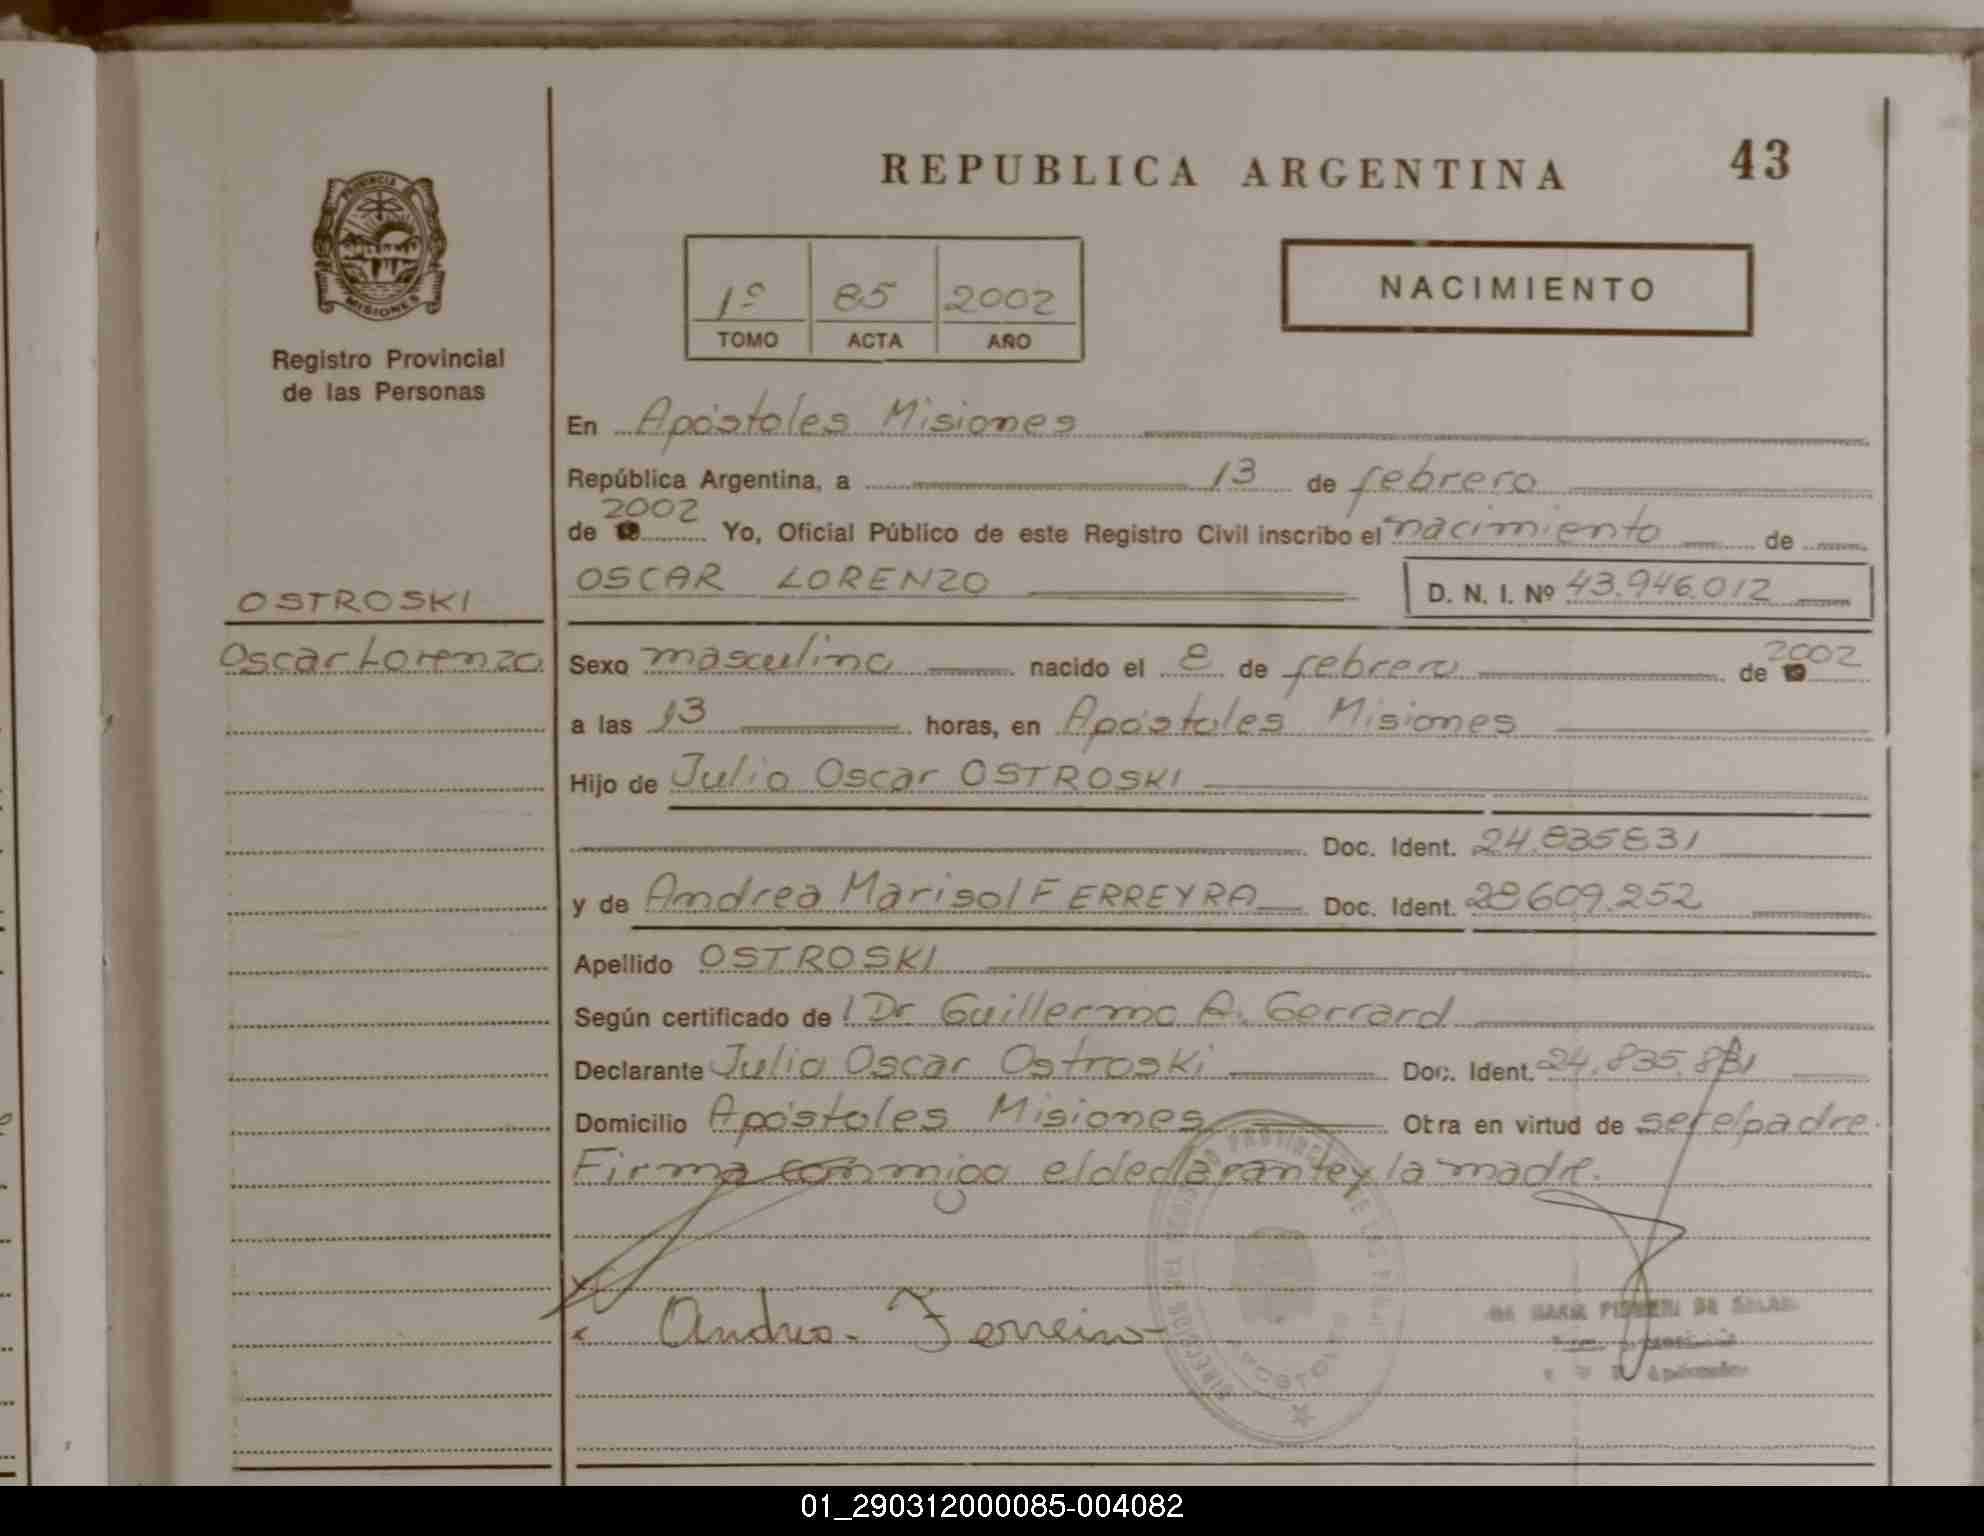 REPUBLICA ARGENTINA
43
PROVINCIA DE
MISIONES
Registro Provincial
de las Personas
1º 85 2002
TOMO ACTA AÑO
NACIMIENTO
En Apóstoles Misiones
República Argentina, a 13 de febrero
2002
de Yo, Oficial Público de este Registro Civil inscribo el nacimiento de
OSCAR LORENZO D. N. I. Nº 43.946.012
OSTROSKI
Oscar Lorenzo
Sexo masculino nacido el 8 de febrero de 2002
a las 13 horas, en Apóstoles Misiones
Hijo de Julio Oscar OSTROSKI
Doc. Ident. 24.835831
y de Andrea Marisol FERREYRA Doc. Ident. 28609.252
Apellido OSTROSKI
Según certificado de l Dr Guillermo A. Gerrard
Declarante Julio Oscar Ostroski Doc. Ident. 24.835.831
Domicilio Apóstoles Misiones Otra en virtud de ser el padre.
Firma conmigo el declarante y la madre.
Andrea Ferreira
01_290312000085-004082